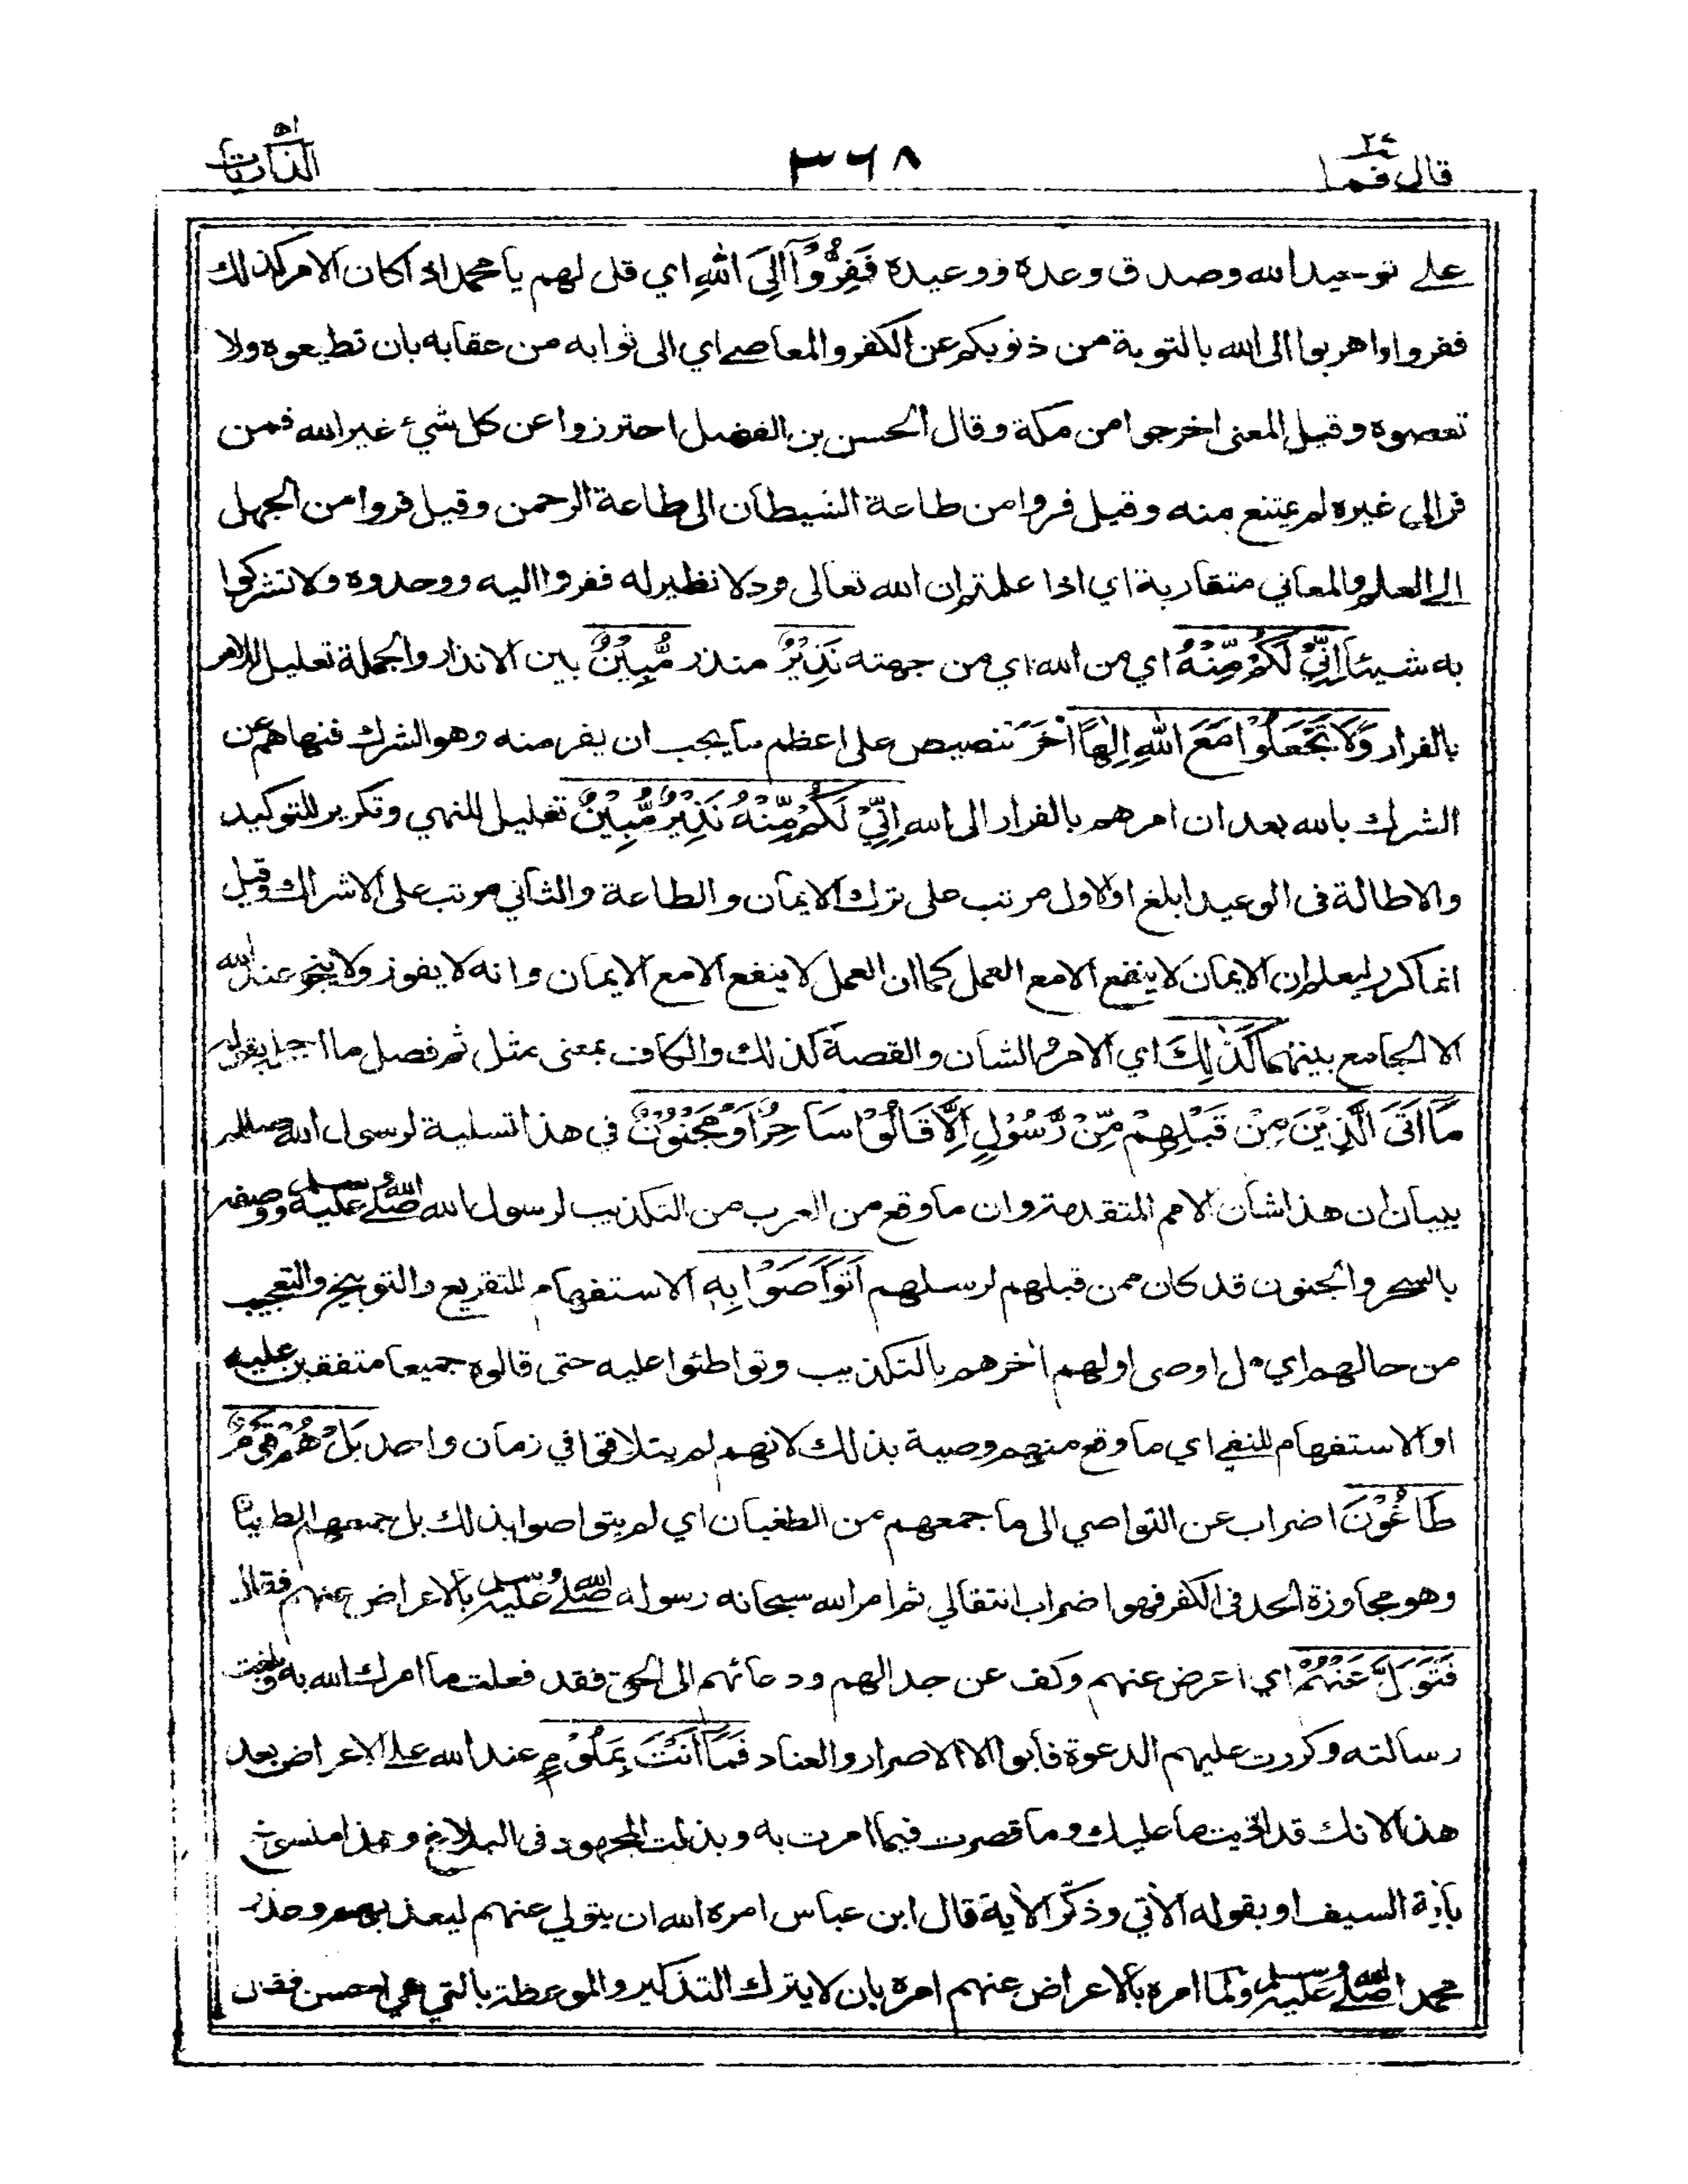 قال فما ٢٧
٣٦٨
الذاريات ٥١
على توحيد الله وصدق وعده ووعيده فَفِرُّوْٓا اِلَى اللّٰهِ اي قل لهم يا محمد اذا كان الامر كذلك
ففروا واهربوا الى الله بالتوبة من ذنوبكم عن الكفر والمعاصي اي الى ثوابه من عقابه بان تطيعوه ولا
تعصوه وقيل المعنى اخرجوا من مكة وقال الحسن بن الفضل احترزوا عن كل شيء غير الله فمن
فر الى غيره لم يمتنع منه وقيل فروا من طاعة الشيطان الى طاعة الرحمن وقيل فروا من الجهل
الى العلم والمعاني متقاربة اي اذا علمتم ان الله تعالى فرد لا نظير له ففروا اليه ووحدوه ولا تشركوا
به شيئا اِنِّيْ لَكُمْ مِّنْهُ اي من الله اي من جهته نَذِيْرٌ منذر مُّبِيْنٌ بين الانذار والجملة تعليل للامر
بالفرار وَلَا تَجْعَلُوْا مَعَ اللّٰهِ اِلٰهًا اٰخَرَ تنصيص على اعظم ما يجب ان يفر منه وهو الشرك فنهاهم عن
الشرك بالله بعد ان امرهم بالفرار الى الله اِنِّيْ لَكُمْ مِّنْهُ نَذِيْرٌ مُّبِيْنٌ تعليل للنهي وتكرير للتوكيد
والاطالة في الوعيد ابلغ او الاول مرتب على ترك الايمان والطاعة والثاني مرتب على الاشراك وقيل
انما كرر ليعلم ان الايمان لا ينفع الا مع العمل كما ان العمل لا ينفع الا مع الايمان وانه لا يفوز ولا ينجو عند الله
الا الجامع بينهما كَذٰلِكَ اي الامر والشأن والقصة كذلك والكاف بمعنى مثل ثم فصل ما اجمل بقوله
مَآ اَتَى الَّذِيْنَ مِنْ قَبْلِهِمْ مِّنْ رَّسُوْلٍ اِلَّا قَالُوْا سَاحِرٌ اَوْ مَجْنُوْنٌ في هذا تسلية لرسول الله صلى الله عليه
ببيان ان هذا شأن الامم المتقدمة وان ما وقع من العرب من التكذيب لرسول الله صلى الله عليه وسلم ووصفه
بالسحر والجنون قد كان ممن قبلهم لرسلهم اَتَوَاصَوْا بِهٖ الاستفهام للتقريع والتوبيخ والتعجيب
من حالهم اي هل اوصى اولهم اخرهم بالتكذيب وتواطئوا عليه حتى قالوه جميعا متفقين عليه
او الاستفهام للنفي اي ما وقع منهم وصية بذلك لانهم لم يتلاقوا في زمان واحد بَلْ هُمْ قَوْمٌ
طَاغُوْنَ اضراب عن التواصي الى ما جمعهم من الطغيان اي لم يتواصوا بذلك بل جمعهم الطغيان
وهو مجاوزة الحد في الكفر فهو اضراب انتقالي ثم امر الله سبحانه رسوله صلى الله عليه وسلم بالاعراض عنهم فقال
فَتَوَلَّ عَنْهُمْ اي اعرض عنهم وكف عن جدالهم ودعائهم الى الحق فقد فعلت ما امرك الله به وبلغت
رسالته وكررت عليهم الدعوة فأبوا الا الاصرار والعناد فَمَآ اَنْتَ بِمَلُوْمٍ عند الله على الاعراض بعد
هذا لانك قد اديت ما عليك وما قصرت فيما امرت به وبذلت المجهود في البلاغ وهذا منسوخ
بأية السيف او بقوله الأتي وذكّر الأية قال ابن عباس امره الله ان يتولى عنهم ليعذبهم وعذر
محمدا صلى الله عليه وسلم ولما امره بالاعراض عنهم امره بان لا يترك التذكير والموعظة بالتي هي احسن فقال